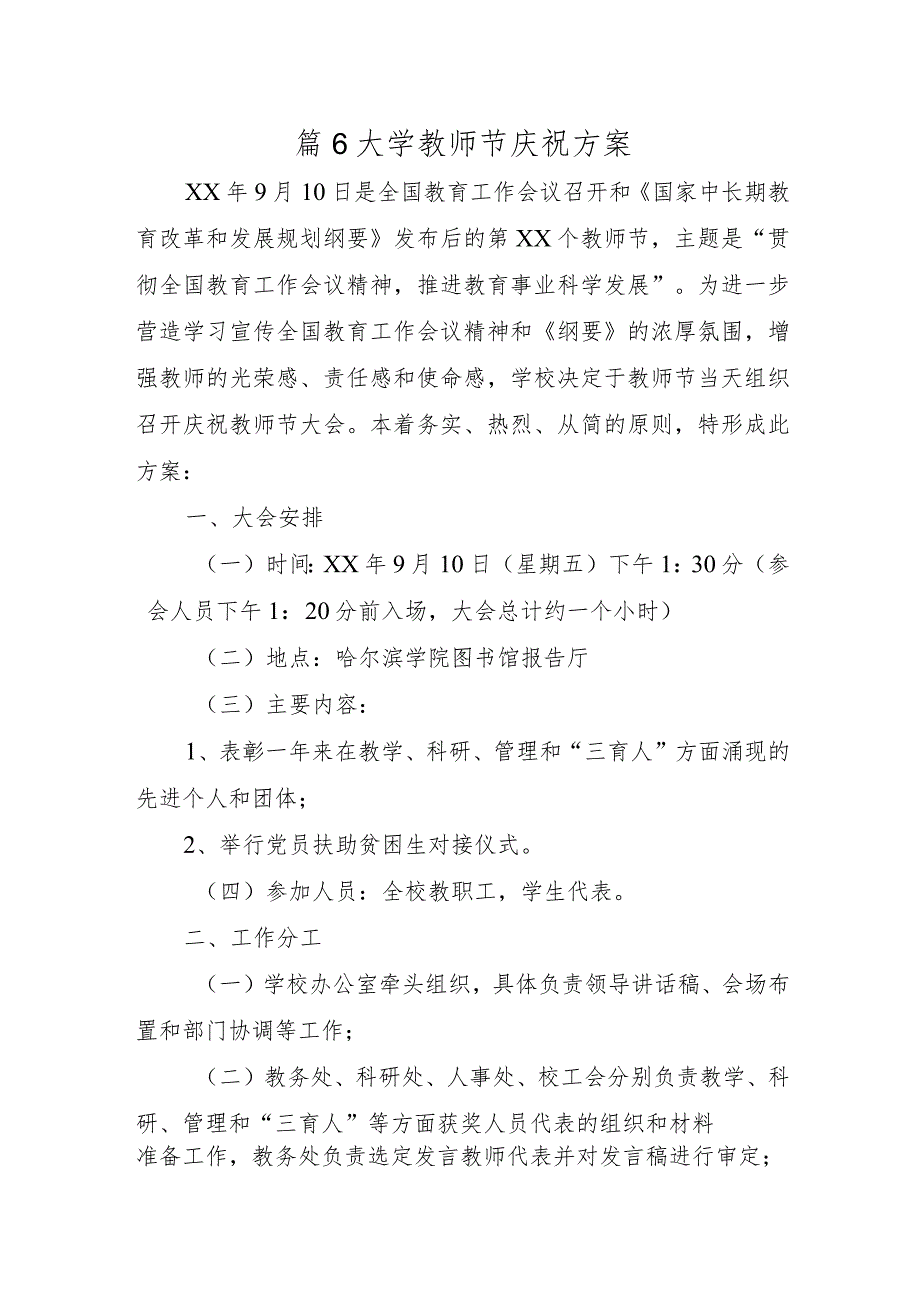 篇6大学教师节庆祝方案
XX年9月10日是全国教育工作会议召开和《国家中长期教
育改革和发展规划纲要》发布后的第XX个教师节，主题是“贯
彻全国教育工作会议精神，推进教育事业科学发展”。为进一步
营造学习宣传全国教育工作会议精神和《纲要》的浓厚氛围，增
强教师的光荣感、责任感和使命感，学校决定于教师节当天组织
召开庆祝教师节大会。本着务实、热烈、从简的原则，特形成此
方案：
一、大会安排
（一）时间：XX年9月10日（星期五）下午1：30分（参
会人员下午1：20分前入场，大会总计约一个小时）
（二）地点：哈尔滨学院图书馆报告厅
（三）主要内容：
1、表彰一年来在教学、科研、管理和“三育人”方面涌现的
先进个人和团体；
2、举行党员扶助贫困生对接仪式。
（四）参加人员：全校教职工，学生代表。
二、工作分工
（一）学校办公室牵头组织，具体负责领导讲话稿、会场布
置和部门协调等工作；
（二）教务处、科研处、人事处、校工会分别负责教学、科
研、管理和“三育人”等方面获奖人员代表的组织和材料
准备工作，教务处负责选定发言教师代表并对发言稿进行审定；